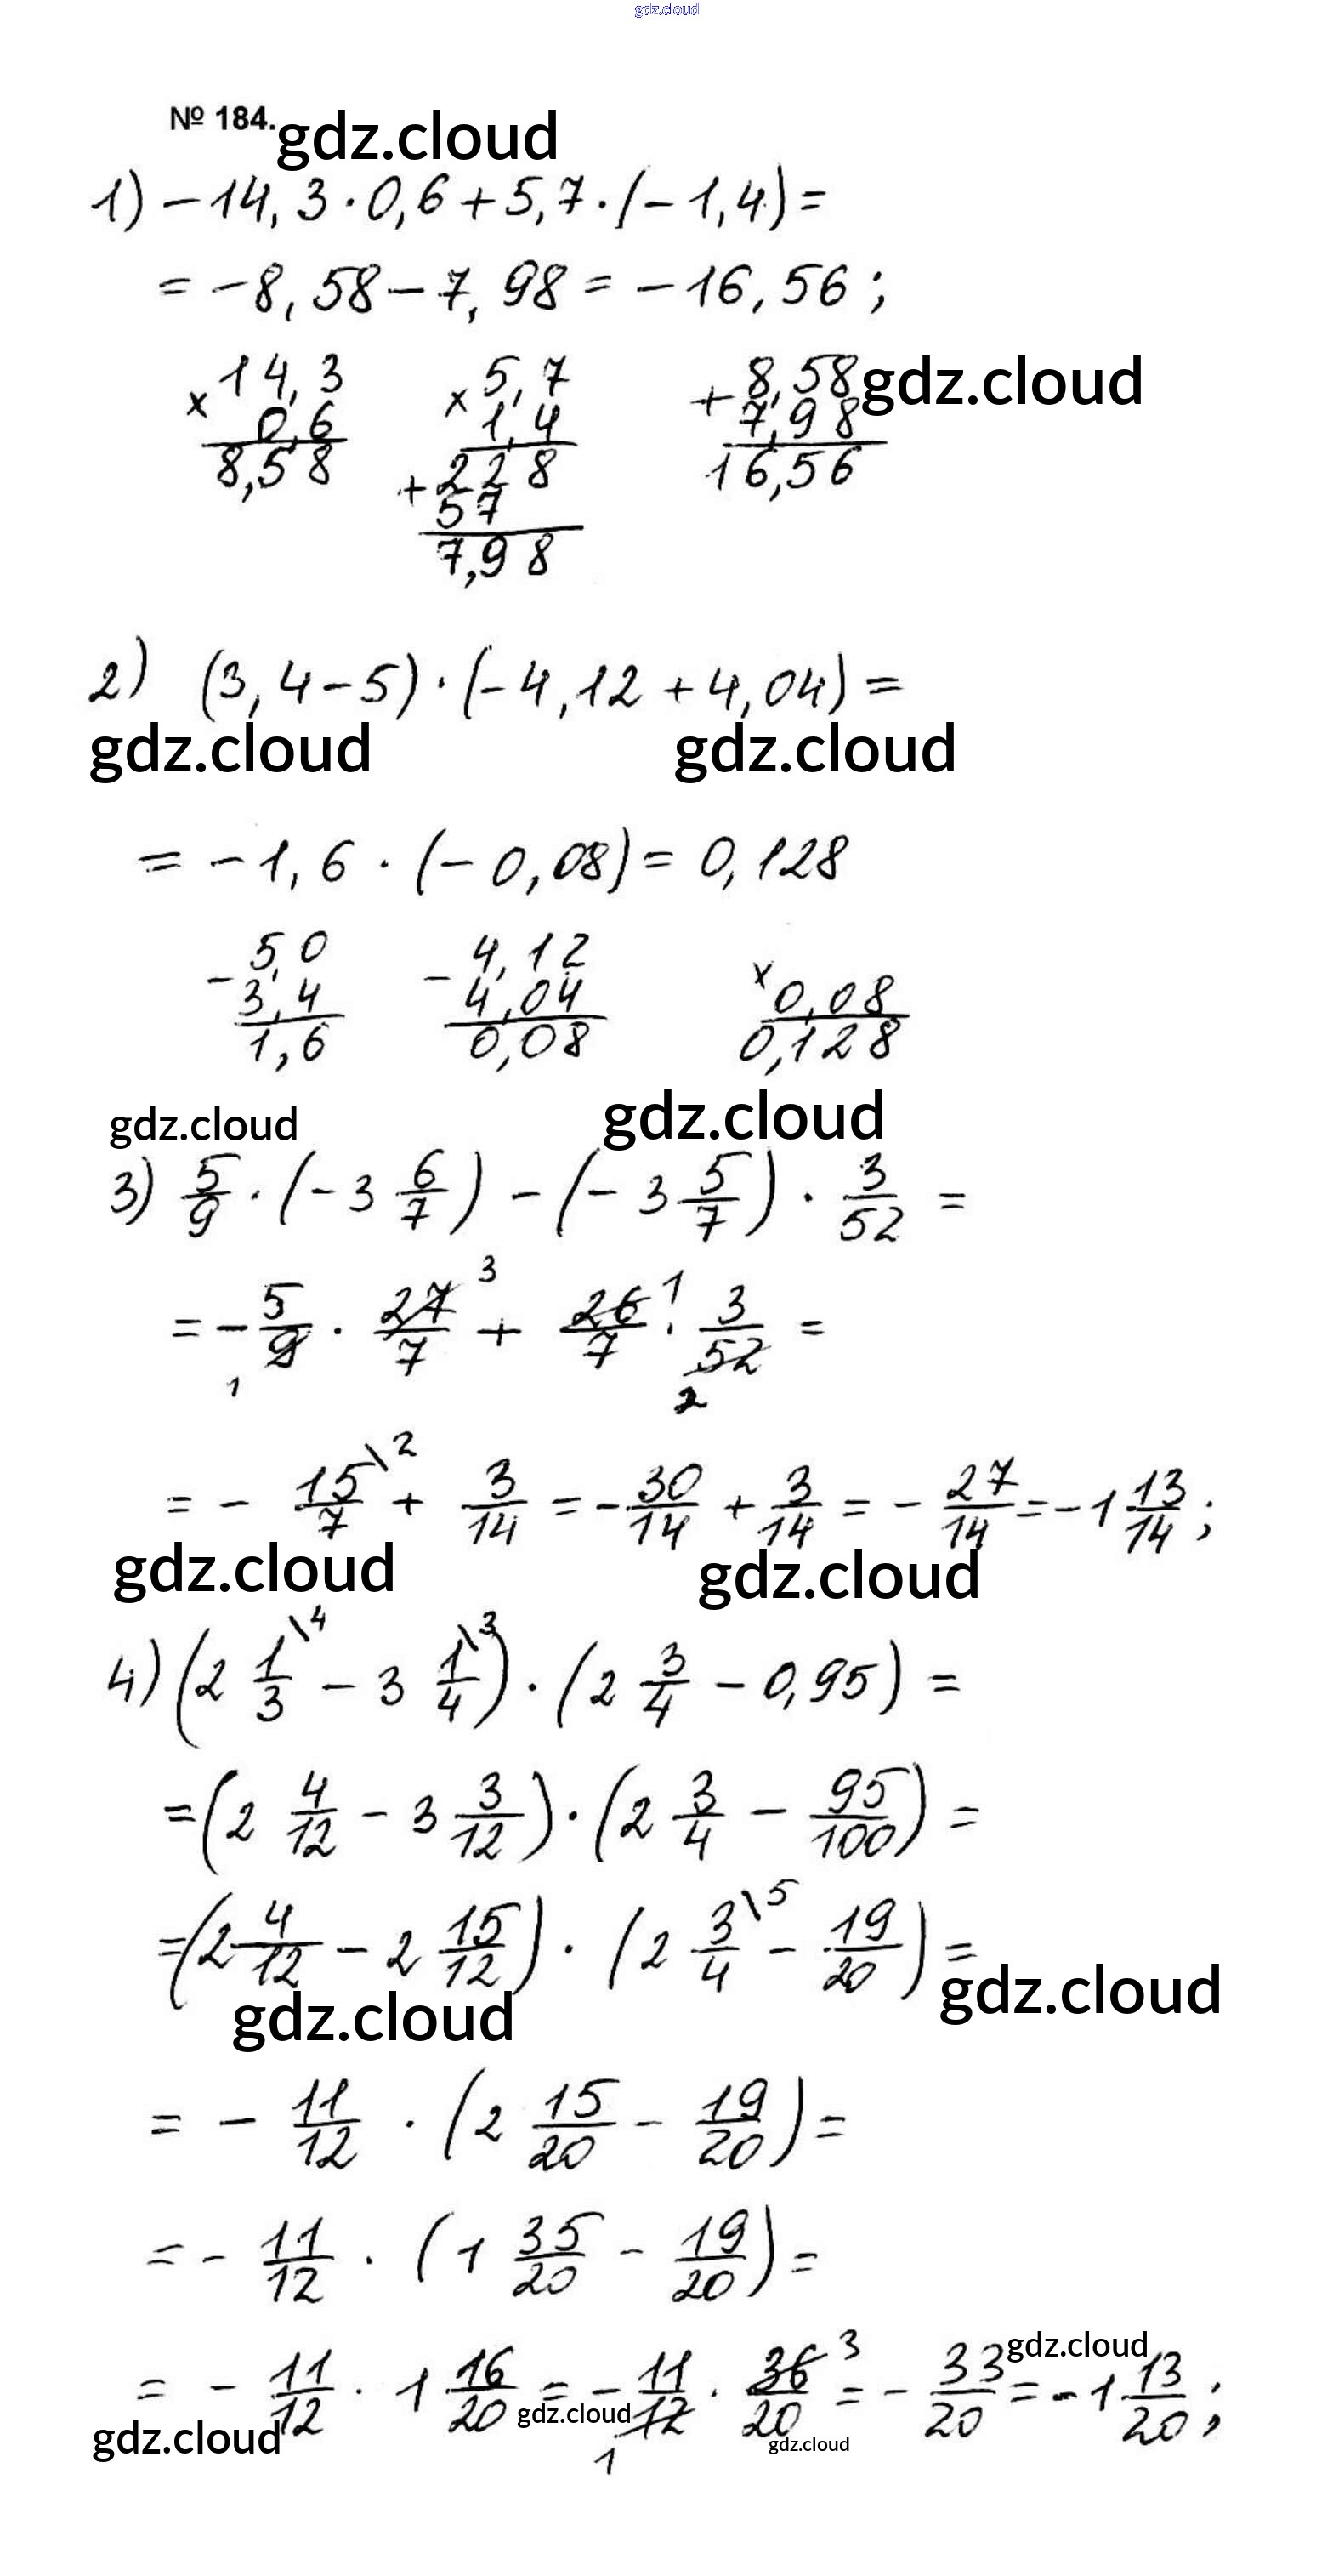 gdz.cloud
№ 184. gdz.cloud
1) -14,3·0,6+5,7·(-1,4)=
= -8,58-7,98 = -16,56;
× 14,3 × 5,7 + 8,58 gdz.cloud
0,6 1,4 7,98
8,58 + 228 16,56
57
7,98
2) (3,4-5)·(-4,12+4,04)=
gdz.cloud gdz.cloud
= -1,6·(-0,08)=0,128
- 5,0 - 4,12
3,4 4,04 × 0,08
1,6 0,08 0,128
gdz.cloud gdz.cloud
3) 5/9·(-3 6/7)-(-3 5/7)·3/52=
= -5/9 1·27/7 3+26/7 1·3/52 2=
= -15/7 \2+3/14=-30/14+3/14=-27/14=-1 13/14;
gdz.cloud gdz.cloud
4) (2 1/3 \4-3 1/4 \3)·(2 3/4-0,95)=
=(2 4/12-3 3/12)·(2 3/4-95/100)=
=(2 4/12-2 15/12)·(2 3/4 \5-19/20)=
gdz.cloud gdz.cloud
= -11/12·(2 15/20-19/20)=
= -11/12·(1 35/20-19/20)=
= -11/12·1 16/20=-11/12 1·36/20 3=-33/20=-1 13/20;
gdz.cloud gdz.cloud gdz.cloud gdz.cloud